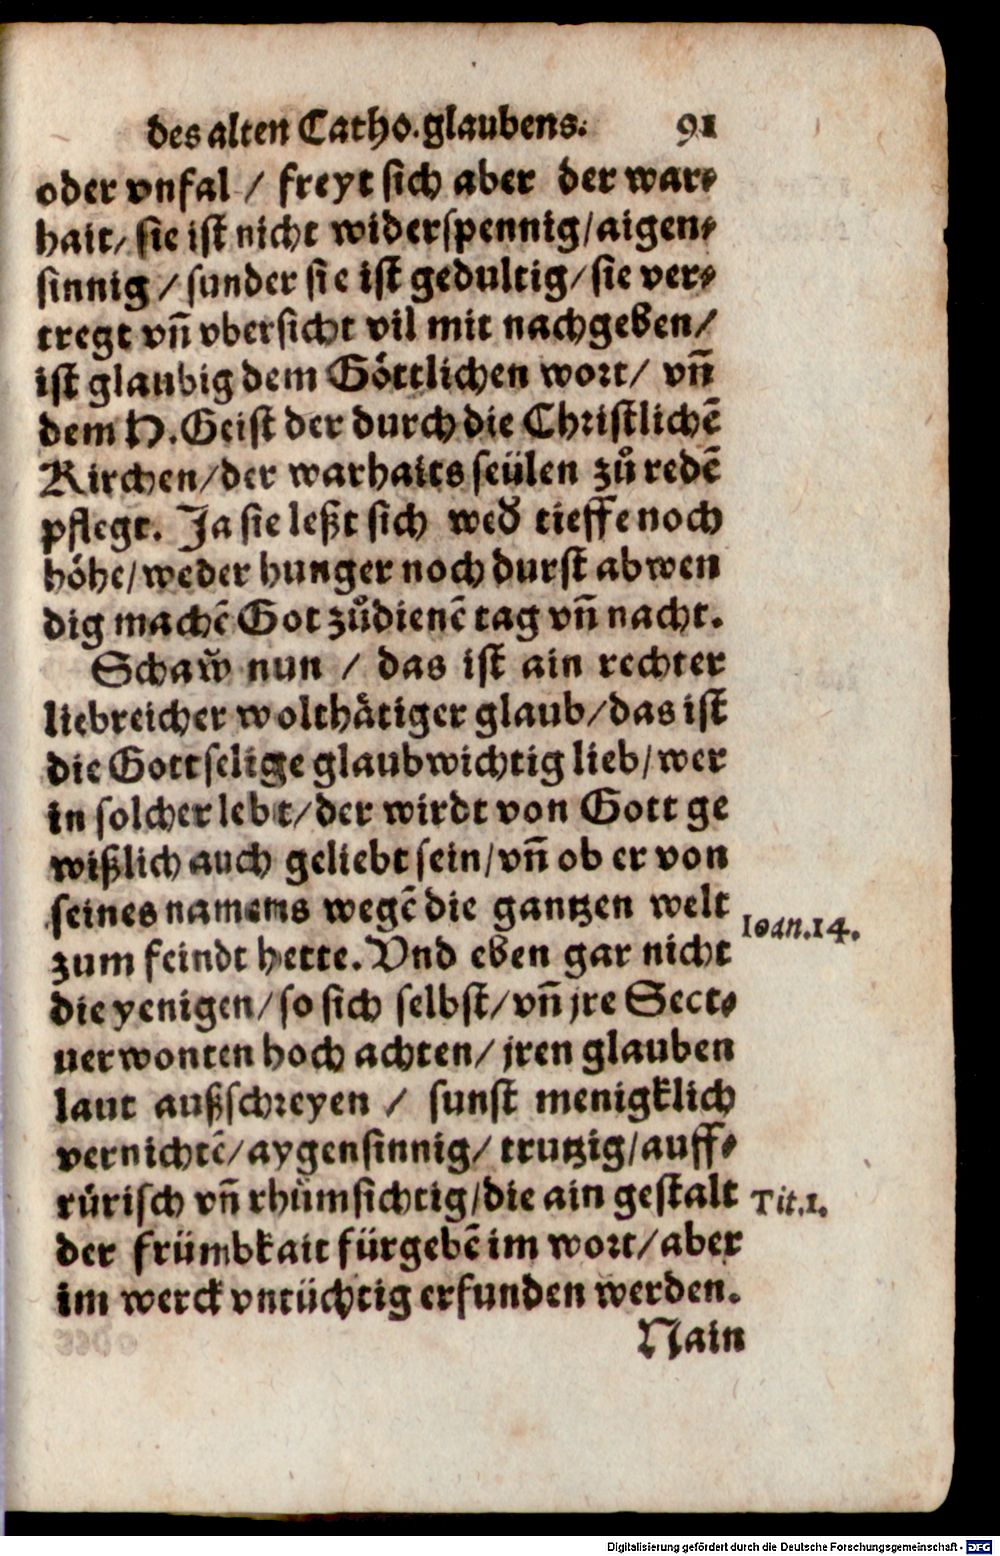 des alten Catho. glaubens. 91
oder vnfal / freyt sich aber der war⸗
hait/ sie ist nicht widerspennig/aigen⸗
sinnig / sunder sie ist gedultig/ sie ver⸗
tregt vñ vbersicht vil mit nachgeben/
ist glaubig dem Göttlichen wort/ vñ
dem H. Geist der durch die Christlichẽ
Kirchen/der warhaits seülen zů redẽ
pflegt. Ja sie leßt sich wed̃ tieffe noch
höhe/weder hunger noch durst abwen
dig machẽ Got zůdienẽ tag vñ nacht.
Schaw̃ nun / das ist ain rechter
liebreicher wolthätiger glaub/das ist
die Gottselige glaubwichtig lieb/wer
in solcher lebt/der wirdt von Gott ge
wißlich auch geliebt sein/vñ ob er von
seines namens wegẽ die gantzen welt
Ioan.14.
zum feindt hette. Vnd eben gar nicht
die yenigen/so sich selbst/vñ jre Sect⸗
uerwonten hoch achten/ jren glauben
laut außschreyen / sunst menigklich
vernichtẽ/aygensinnig/ trutzig/auff⸗
rürisch vñ rhůmsichtig/die ain gestalt
Tit.1.
der frümbkait fürgebẽ im wort/aber
im werck vntüchtig erfunden werden.
Nain
Digitalisierung gefördert durch die Deutsche Forschungsgemeinschaft - DFG